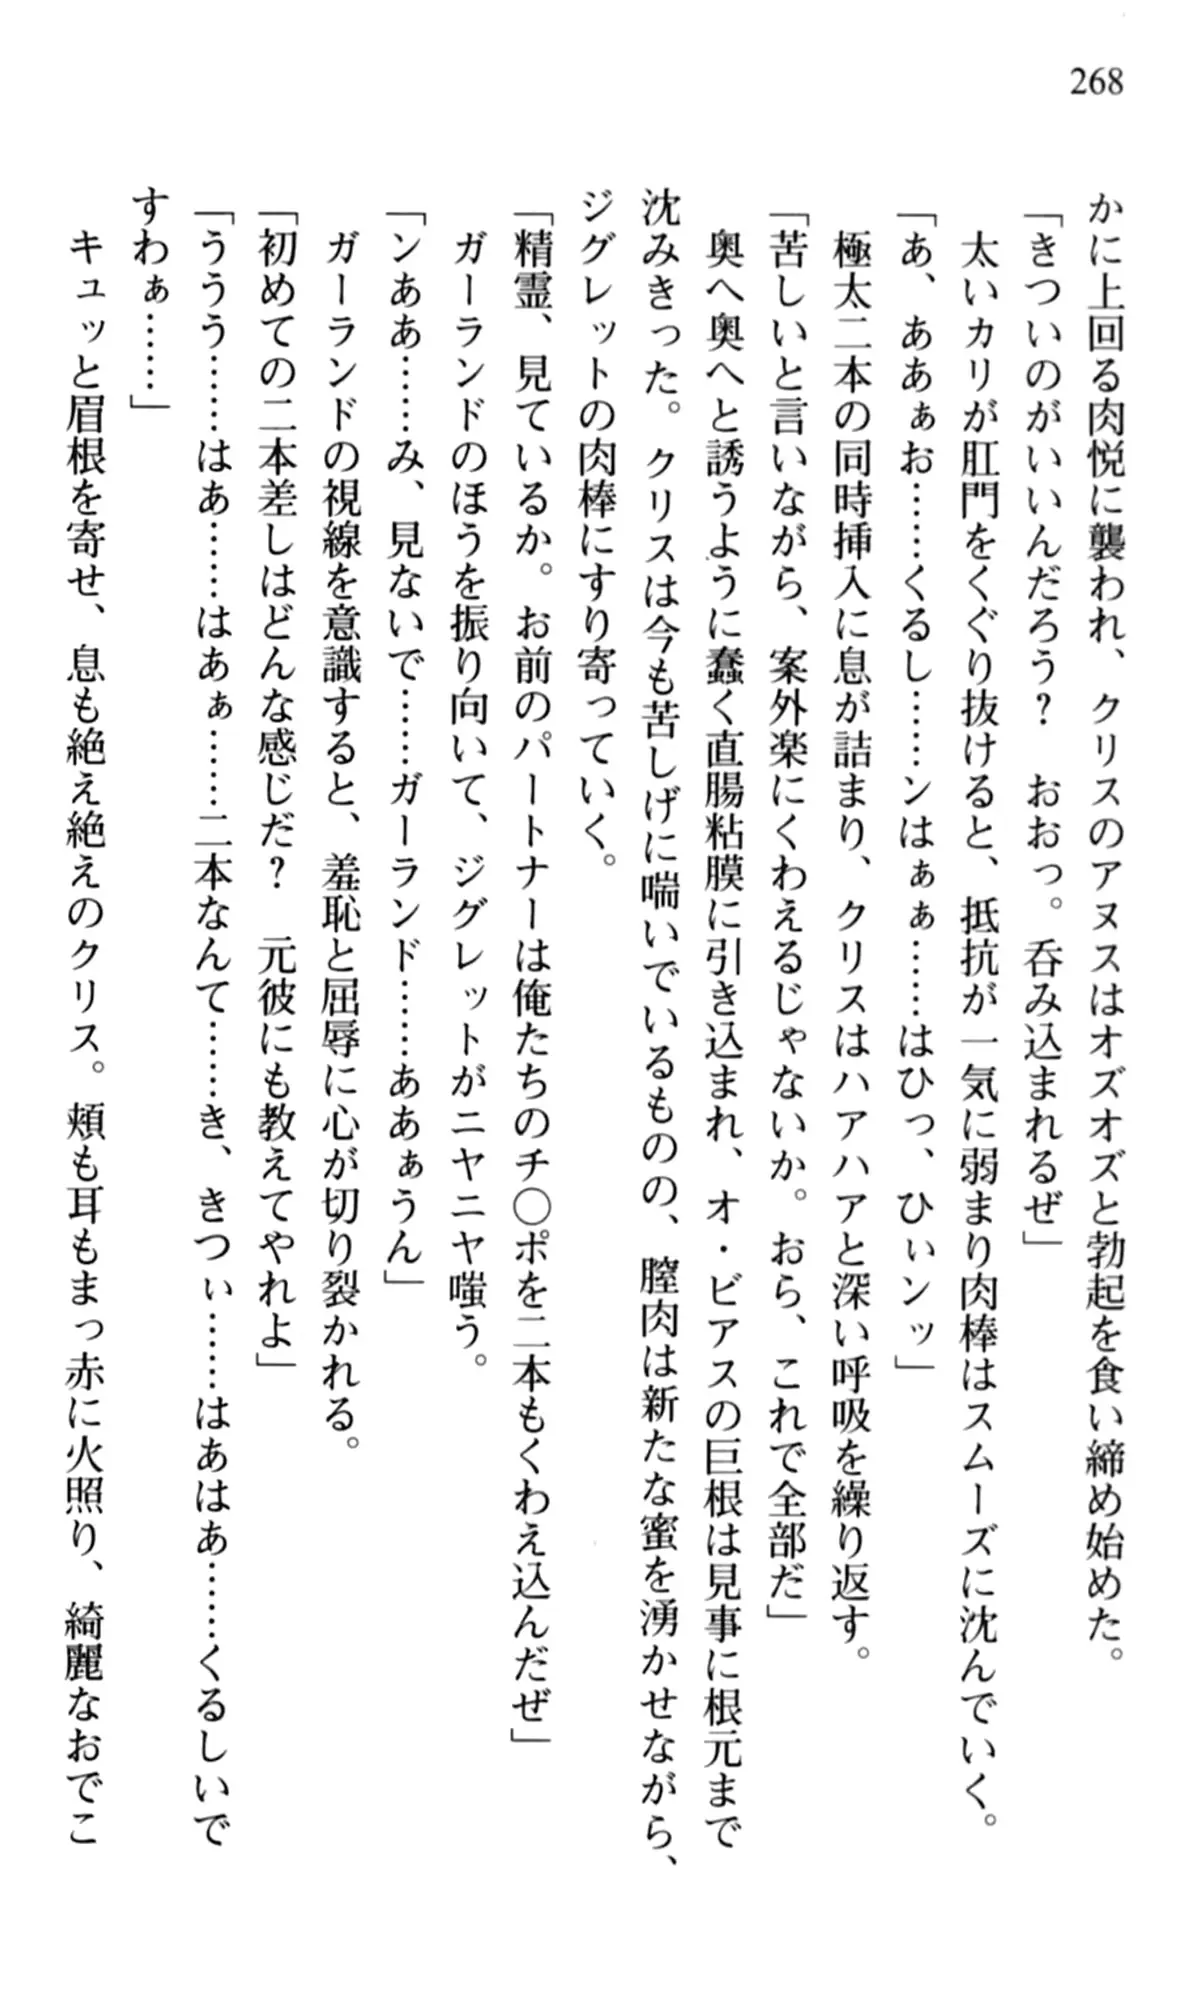 268
かに上回る肉悦に襲われ、クリスのアヌスはオズオズと勃起を食い締め始めた。
「きついのがいいんだろう？　おおっ。呑み込まれるぜ」
太いカリが肛門をくぐり抜けると、抵抗が一気に弱まり肉棒はスムーズに沈んでいく。
「あ、ああぁお……くるし……ンはぁぁ……はひっ、ひぃンッ」
極太二本の同時挿入に息が詰まり、クリスはハアハアと深い呼吸を繰り返す。
「苦しいと言いながら、案外楽にくわえるじゃないか。おら、これで全部だ」
奥へ奥へと誘うように蠢く直腸粘膜に引き込まれ、オ・ビアスの巨根は見事に根元まで
沈みきった。クリスは今も苦しげに喘いでいるものの、膣肉は新たな蜜を湧かせながら、
ジグレットの肉棒にすり寄っていく。
「精霊、見ているか。お前のパートナーは俺たちのチ〇ポを二本もくわえ込んだぜ」
ガーランドのほうを振り向いて、ジグレットがニヤニヤ嗤う。
「ンああ……み、見ないで……ガーランド……ああぁうん」
ガーランドの視線を意識すると、羞恥と屈辱に心が切り裂かれる。
「初めての二本差しはどんな感じだ？　元彼にも教えてやれよ」
「ううう……はあ……はあぁ……二本なんて……き、きつぃ……はあはあ……くるしいで
すわぁ……」
キュッと眉根を寄せ、息も絶え絶えのクリス。頬も耳もまっ赤に火照り、綺麗なおでこ